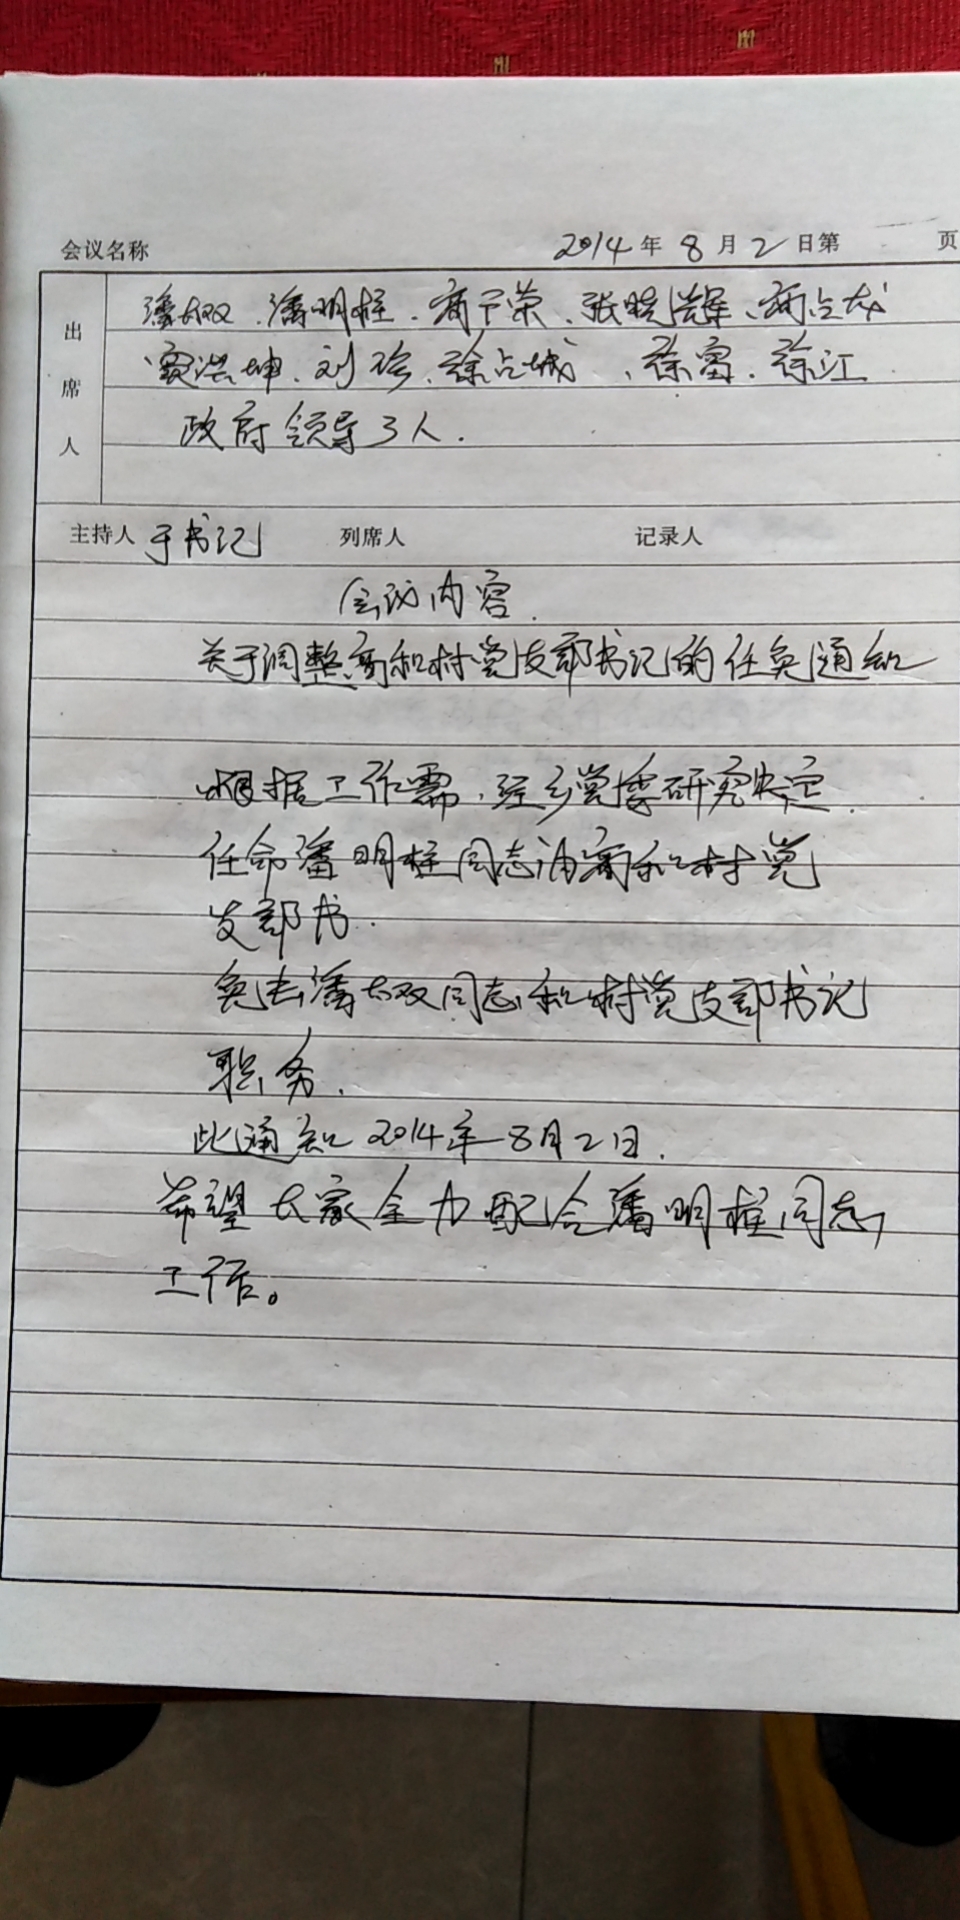 会议名称 2014年8月2日第 页
出席人
潘双、潘明柱、商子荣、张晓辉、商占龙
贾洪坤、刘珍、徐占城、徐富、徐江
政府领导3人.
主持人 于书记 列席人 记录人
会议内容.
关于调整商和村党支部书记的任免通知
根据工作需、经乡党委研究决定.
任命潘明柱同志 商和村党
支部书.
免去潘双同志和村党支部书记
职务.
此通知 2014年8月2日.
希望大家全力配合潘明柱同志
工作。